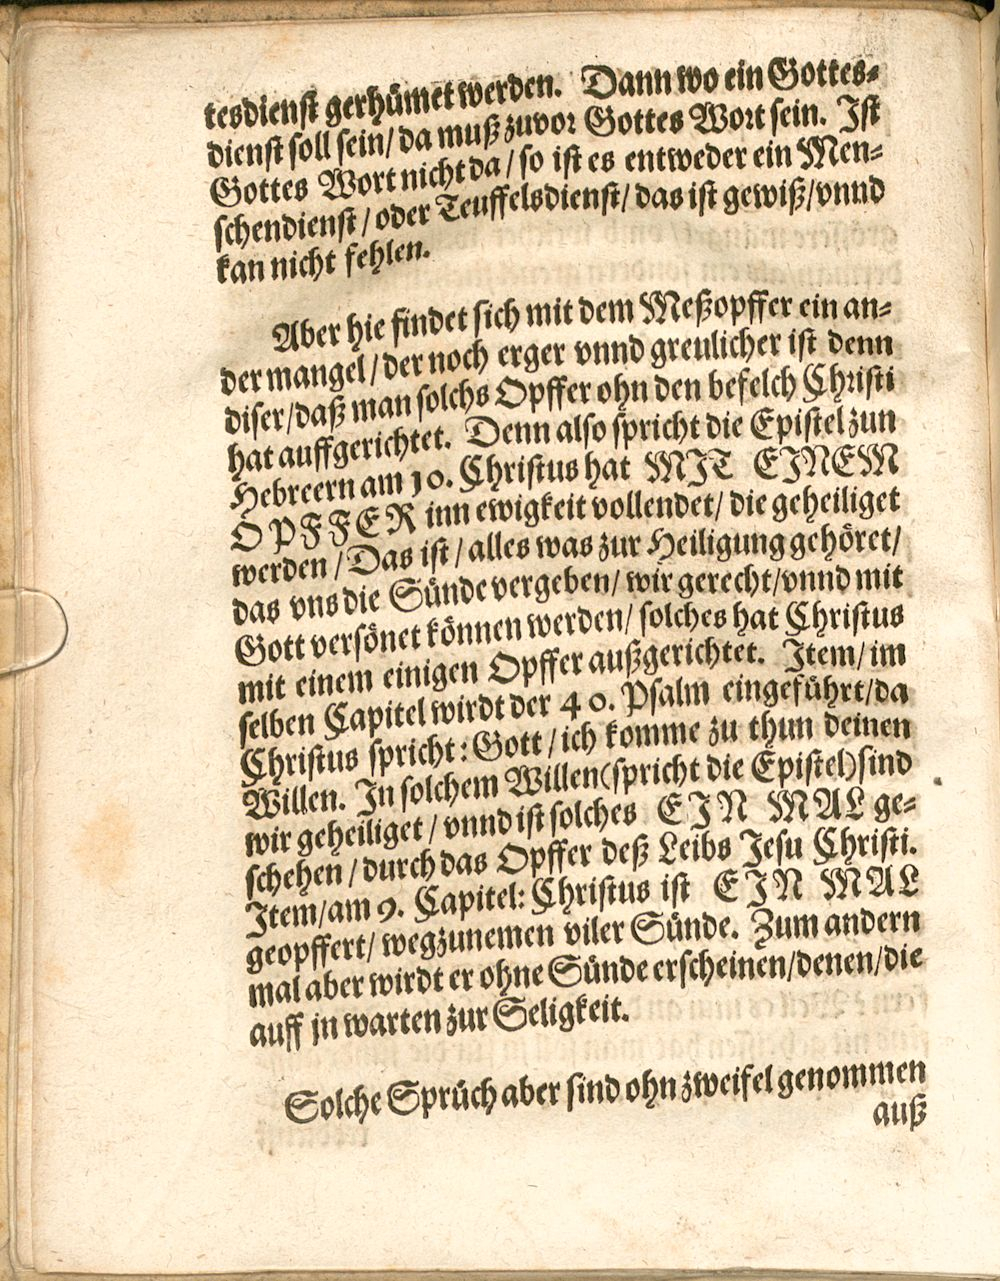 tesdienst gerhümet werden. Dann wo ein Gottes-
dienst soll sein/ da muß zuvor Gottes Wort sein. Ist
Gottes Wort nicht da/ so ist es entweder ein Men-
schendienst/ oder Teuffelsdienst/ das ist gewiß/ vnnd
kan nicht fehlen.
Aber hie findet sich mit dem Meßopffer ein an-
der mangel/ der noch erger vnnd greulicher ist denn
diser/ daß man solchs Opffer ohn den befelch Christi
hat auffgerichtet. Denn also spricht die Epistel zun
Hebreern am 10. Christus hat MIT EINEM
OPFFER inn ewigkeit vollendet/ die geheiliget
werden/ Das ist/ alles was zur Heiligung gehöret/
das vns die Sünde vergeben/ wir gerecht/ vnnd mit
Gott versönet können werden/ solches hat Christus
mit einem einigen Opffer außgerichtet. Item/ im
selben Capitel wirdt der 40. Psalm eingeführt/ da
Christus spricht: Gott/ ich komme zu thun deinen
Willen. In solchem Willen (spricht die Epistel) sind
wir geheiliget/ vnnd ist solches EIN MAL ge-
schehen/ durch das Opffer deß Leibs Jesu Christi.
Item/ am 9. Capitel: Christus ist EIN MAL
geopffert/ wegzunemen viler Sünde. Zum andern
mal aber wirdt er ohne Sünde erscheinen/ denen/ die
auff jn warten zur Seligkeit.
Solche Sprüch aber sind ohn zweifel genommen
auß